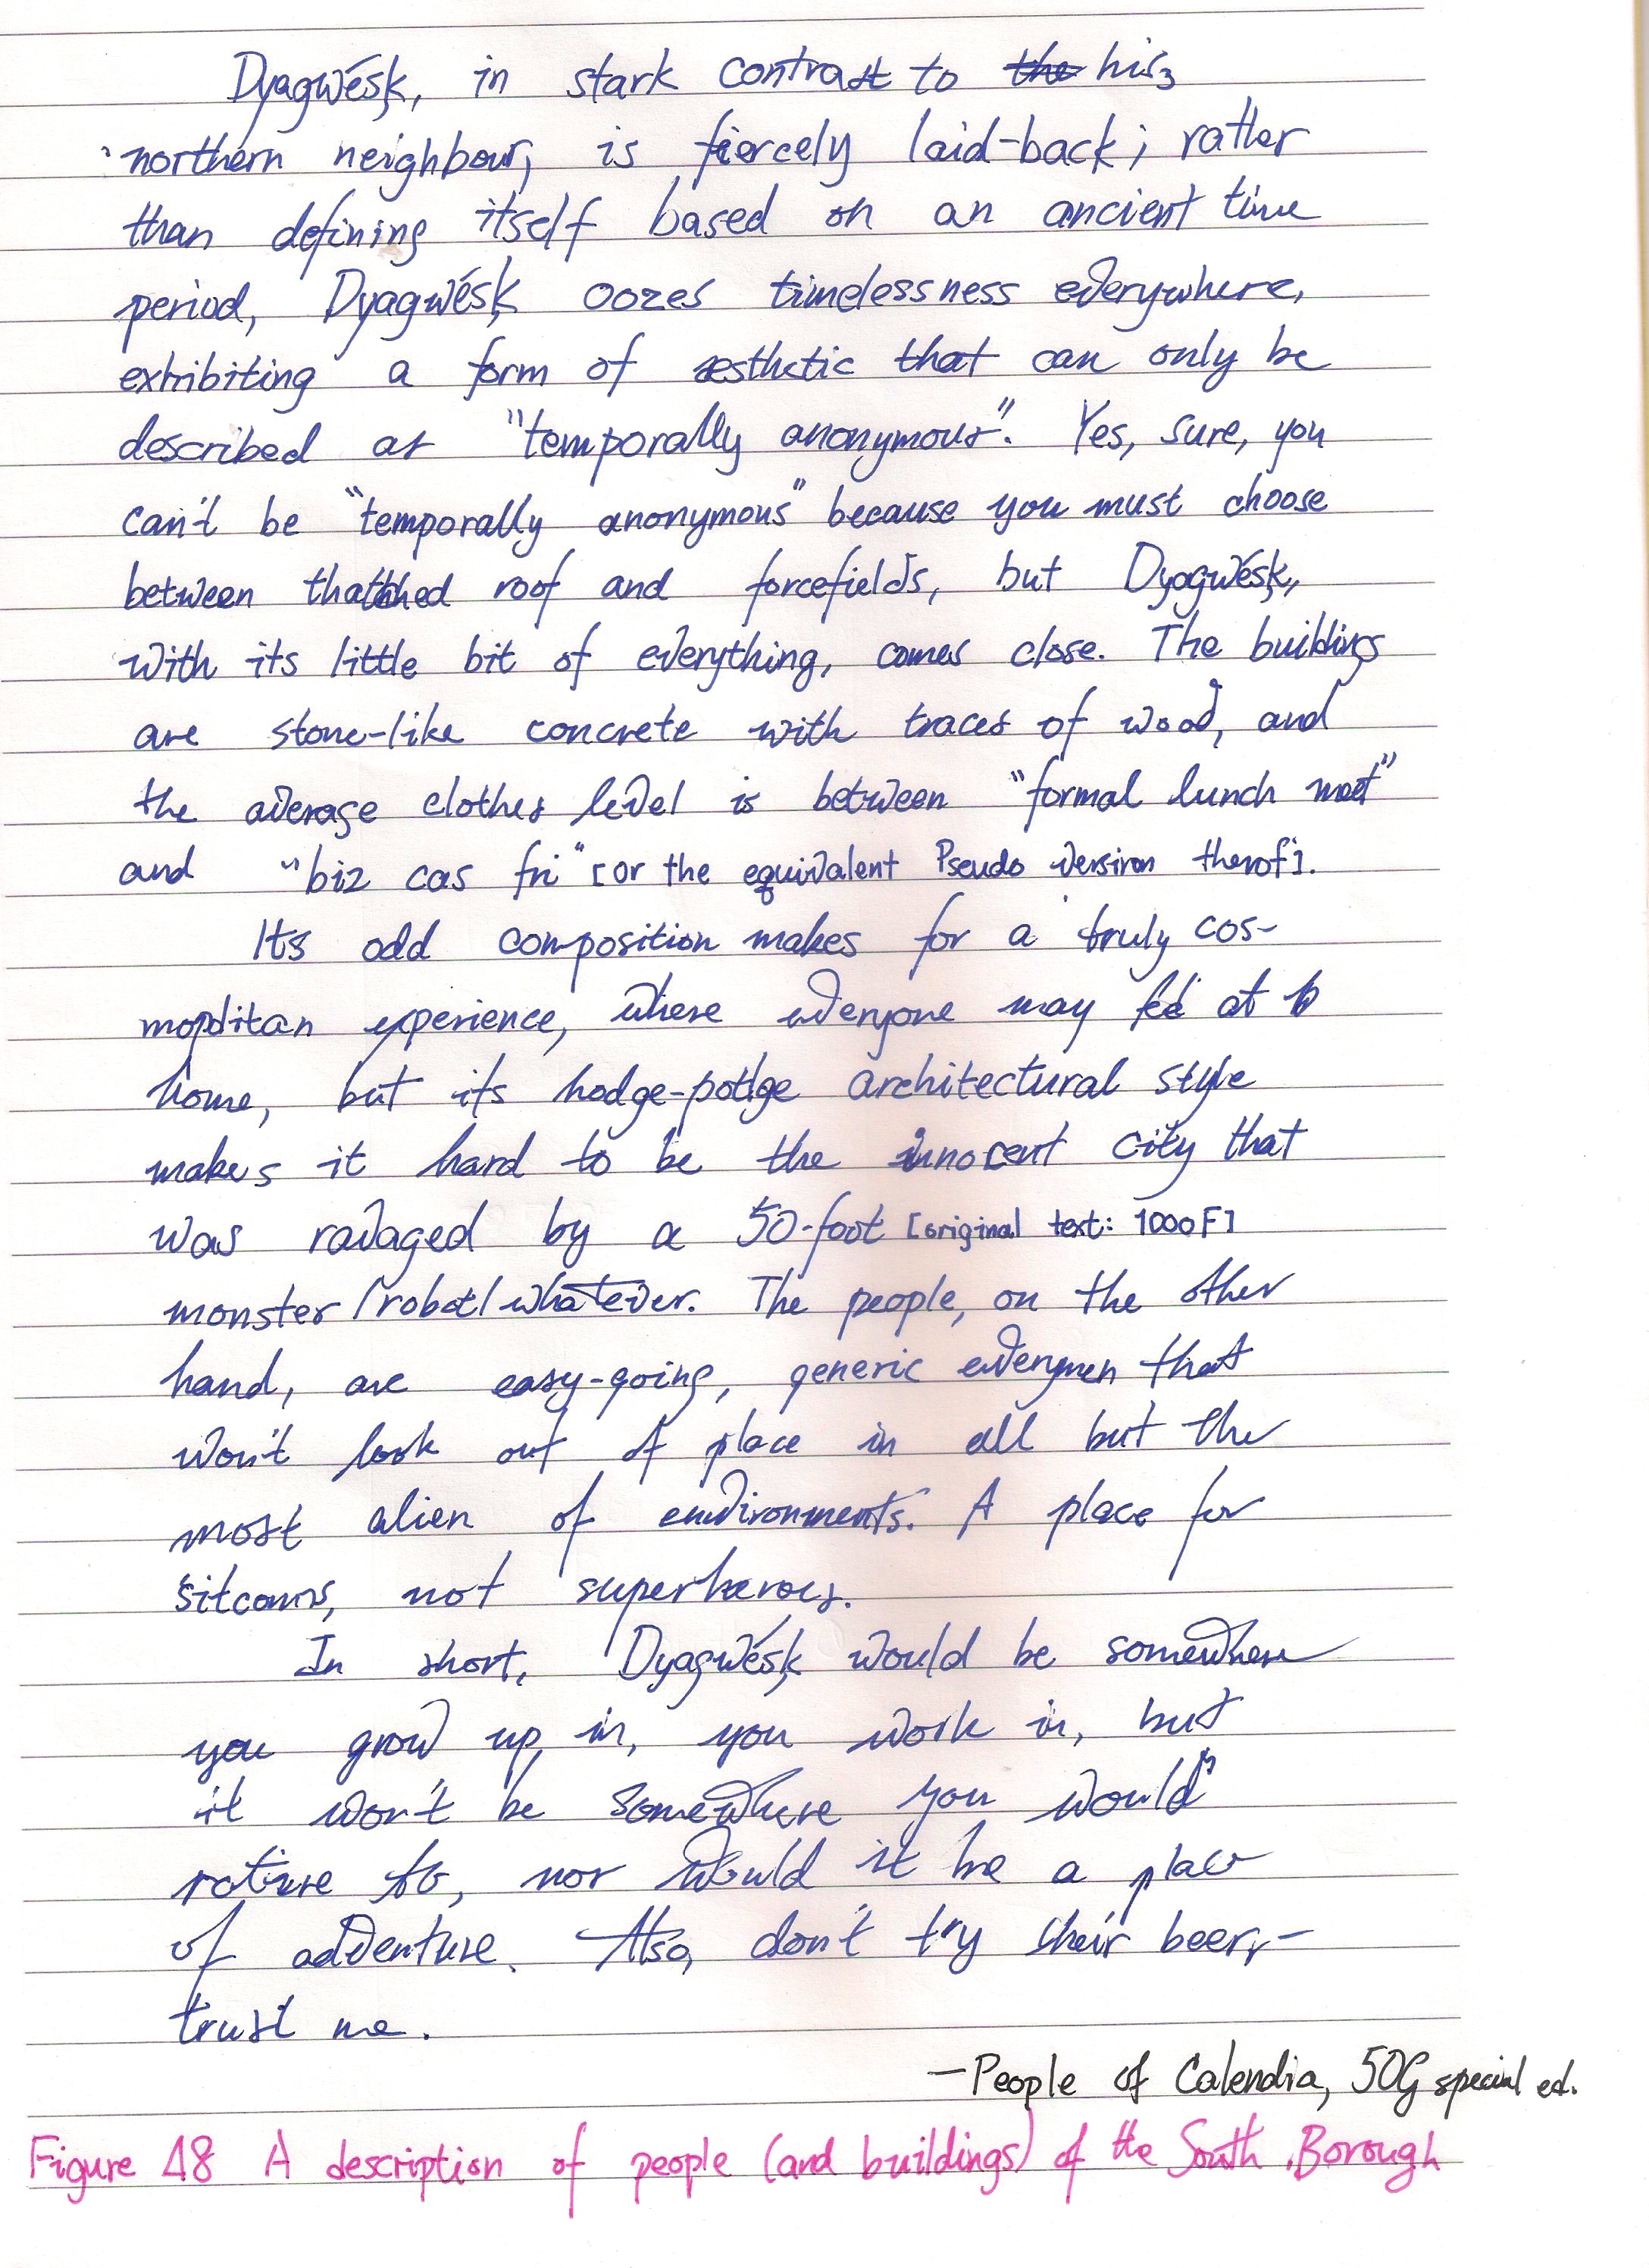 Dyagwésk, in stark contrast to the his
northern neighbour, is fiercely laid-back; rather
than defining itself based on an ancient time
period, Dyagwésk oozes timelessness everywhere,
exhibiting a form of æsthetic that can only be
described as "temporally anonymous". Yes, sure, you
can't be "temporally anonymous" because you must choose
between thatched roof and forcefields, but Dyagwésk,
with its little bit of everything, comes close. The buildings
are stone-like concrete with traces of wood, and
the average clothes level is between "formal lunch meet"
and "biz cas fri" [or the equivalent Pseudo version therof].
Its odd composition makes for a truly cos-
mopolitan experience, where everyone may feel at
home, but its hodge-podge architectural style
makes it hard to be the innocent city that
was ravaged by a 50-foot [original text: 1000F]
monster/robot/whatever. The people, on the other
hand, are easy-going, generic everymen that
won't look out of place in all but the
most alien of environments. A place for
sitcoms, not superheroes.
In short, Dyagwésk would be somewhere
you grow up in, you work in, but
it won't be somewhere you would
retire to, nor would it be a place
of adventure. Also, don't try their beer,–
trust me.
—People of Calendia, 50G special ed.
Figure 48 A description of people (and buildings) of the South Borough